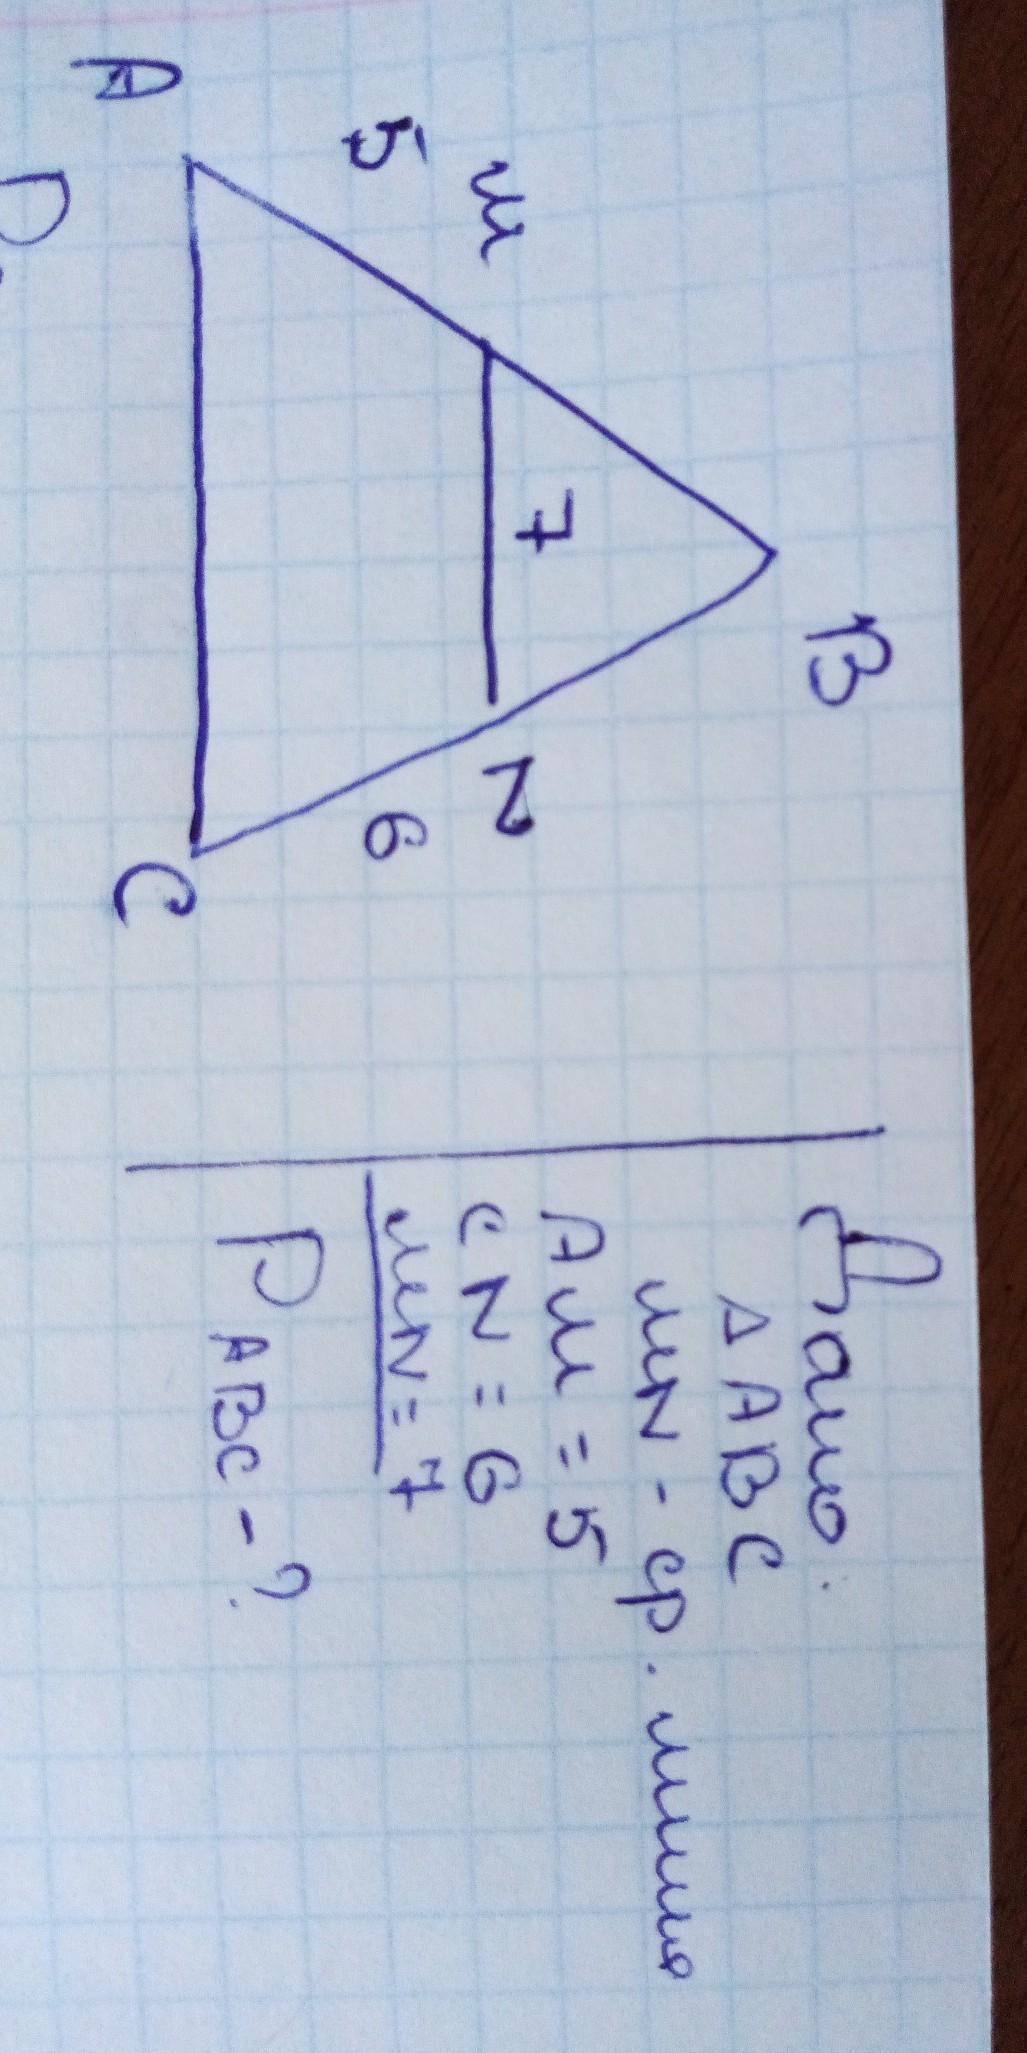 B
M
N
7
5
6
A
C
Дано:
Δ ABC
MN - ср. линия
AM = 5
CN = 6
MN = 7
P ABC - ?